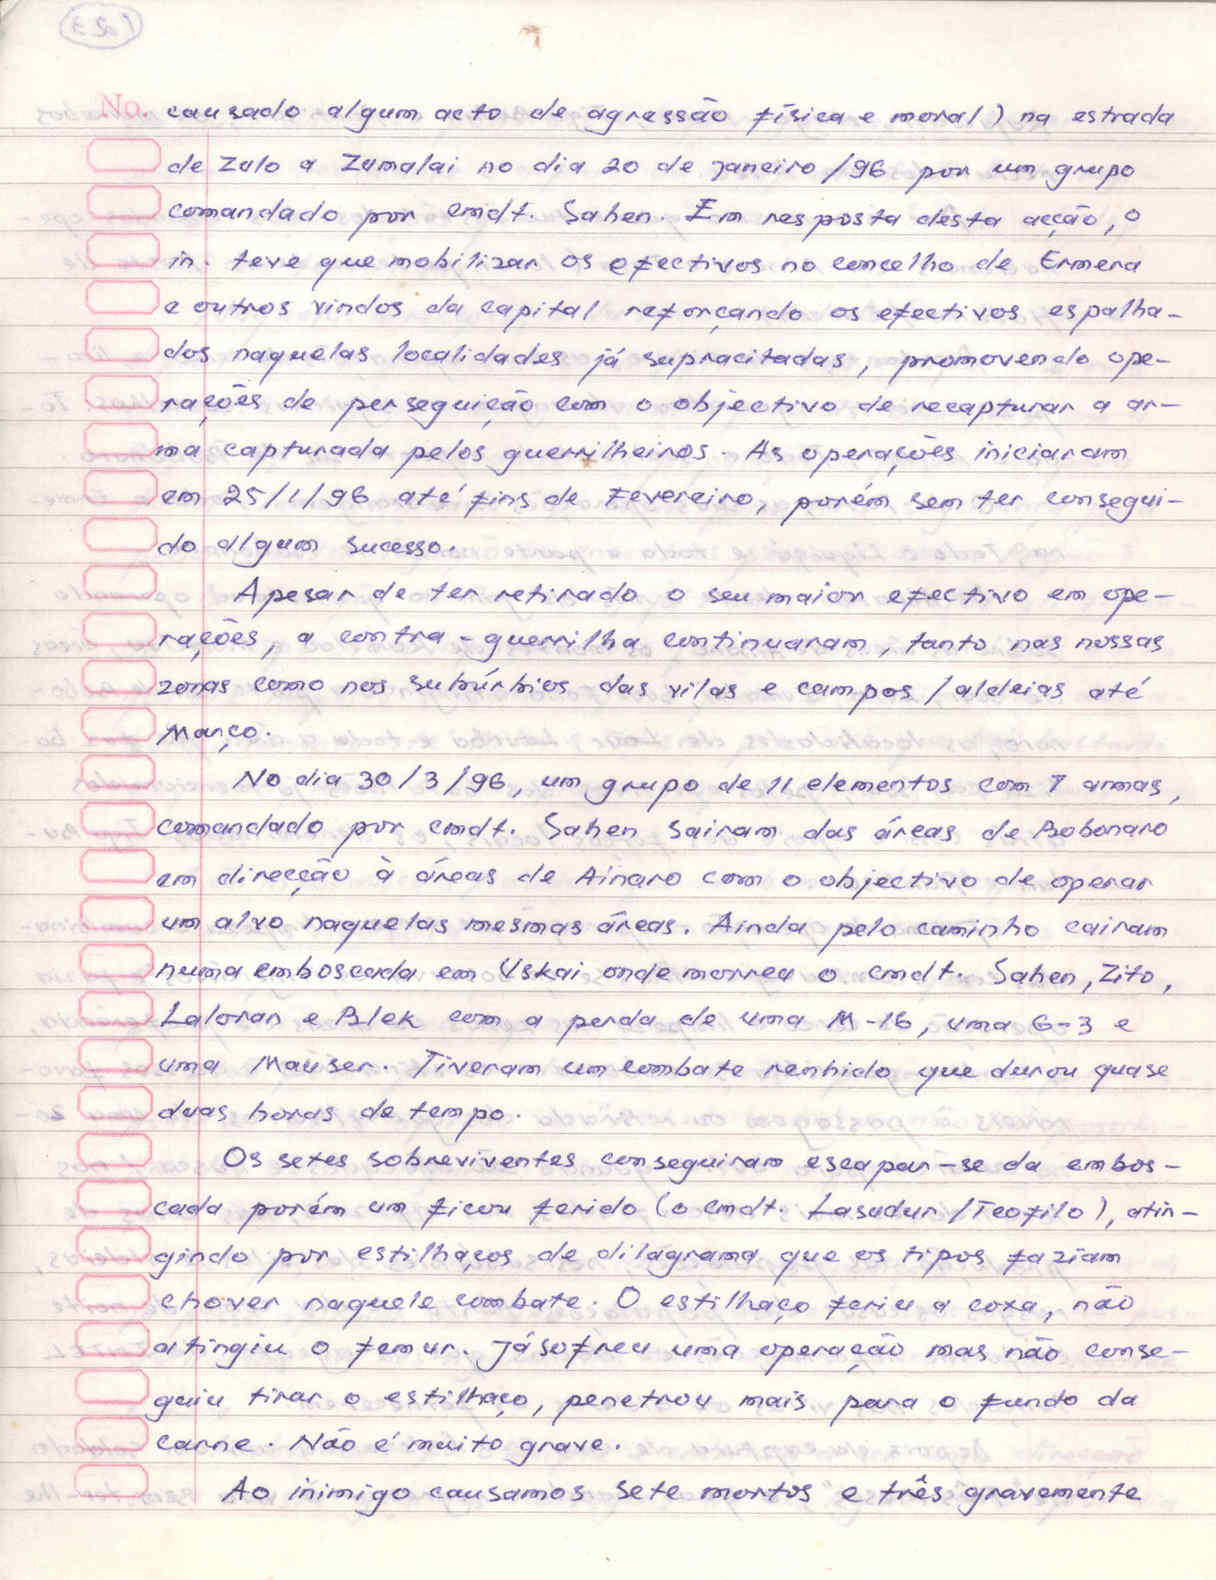 (23)
No. causado algum acto de agressão física e moral) na estrada
de Zulo a Zumalai no dia 20 de Janeiro/96 por um grupo
comandado por cmdt. Sahen. Em resposta desta acção, o
in. teve que mobilizar os efectivos no concelho de Ermera
e outros vindos da capital reforçando os efectivos espalha-
dos naquelas localidades já supracitadas, promovendo ope-
rações de perseguição com o objectivo de recapturar a ar-
ma capturada pelos guerrilheiros. As operações iniciaram
em 25/1/96 até fins de Fevereiro, porém sem ter consegui-
do algum sucesso.
Apesar de ter retirado o seu maior efectivo em ope-
rações, a contra-guerrilha continuaram, tanto nas nossas
zonas como nos subúrbios das vilas e campos/aldeias até
Março.
No dia 30/3/96, um grupo de 11 elementos com 7 armas,
comandado por cmdt. Sahen sairam das áreas de Bobonaro
em direcção à áreas de Ainaro com o objectivo de operar
um alvo naquelas mesmas áreas. Ainda pelo caminho cairam
numa emboscada em Uskai onde morreu o cmdt. Sahen, Zito,
Laloran e Blek com a perda de uma M-16, uma G-3 e
uma Mauser. Tiveram um combate renhido que durou quase
duas horas de tempo.
Os setes sobreviventes conseguiram escapar-se da embos-
cada porém um ficou ferido (o cmdt. Lasudur/Teofilo), atin-
gindo por estilhaços de dilagrama que os tipos faziam
chover naquele combate. O estilhaço feriu a coxa, não
atingiu o femur. Já sofreu uma operação mas não conse-
guiu tirar o estilhaço, penetrou mais para o fundo da
carne. Não é muito grave.
Ao inimigo causamos sete mortos e três gravemente